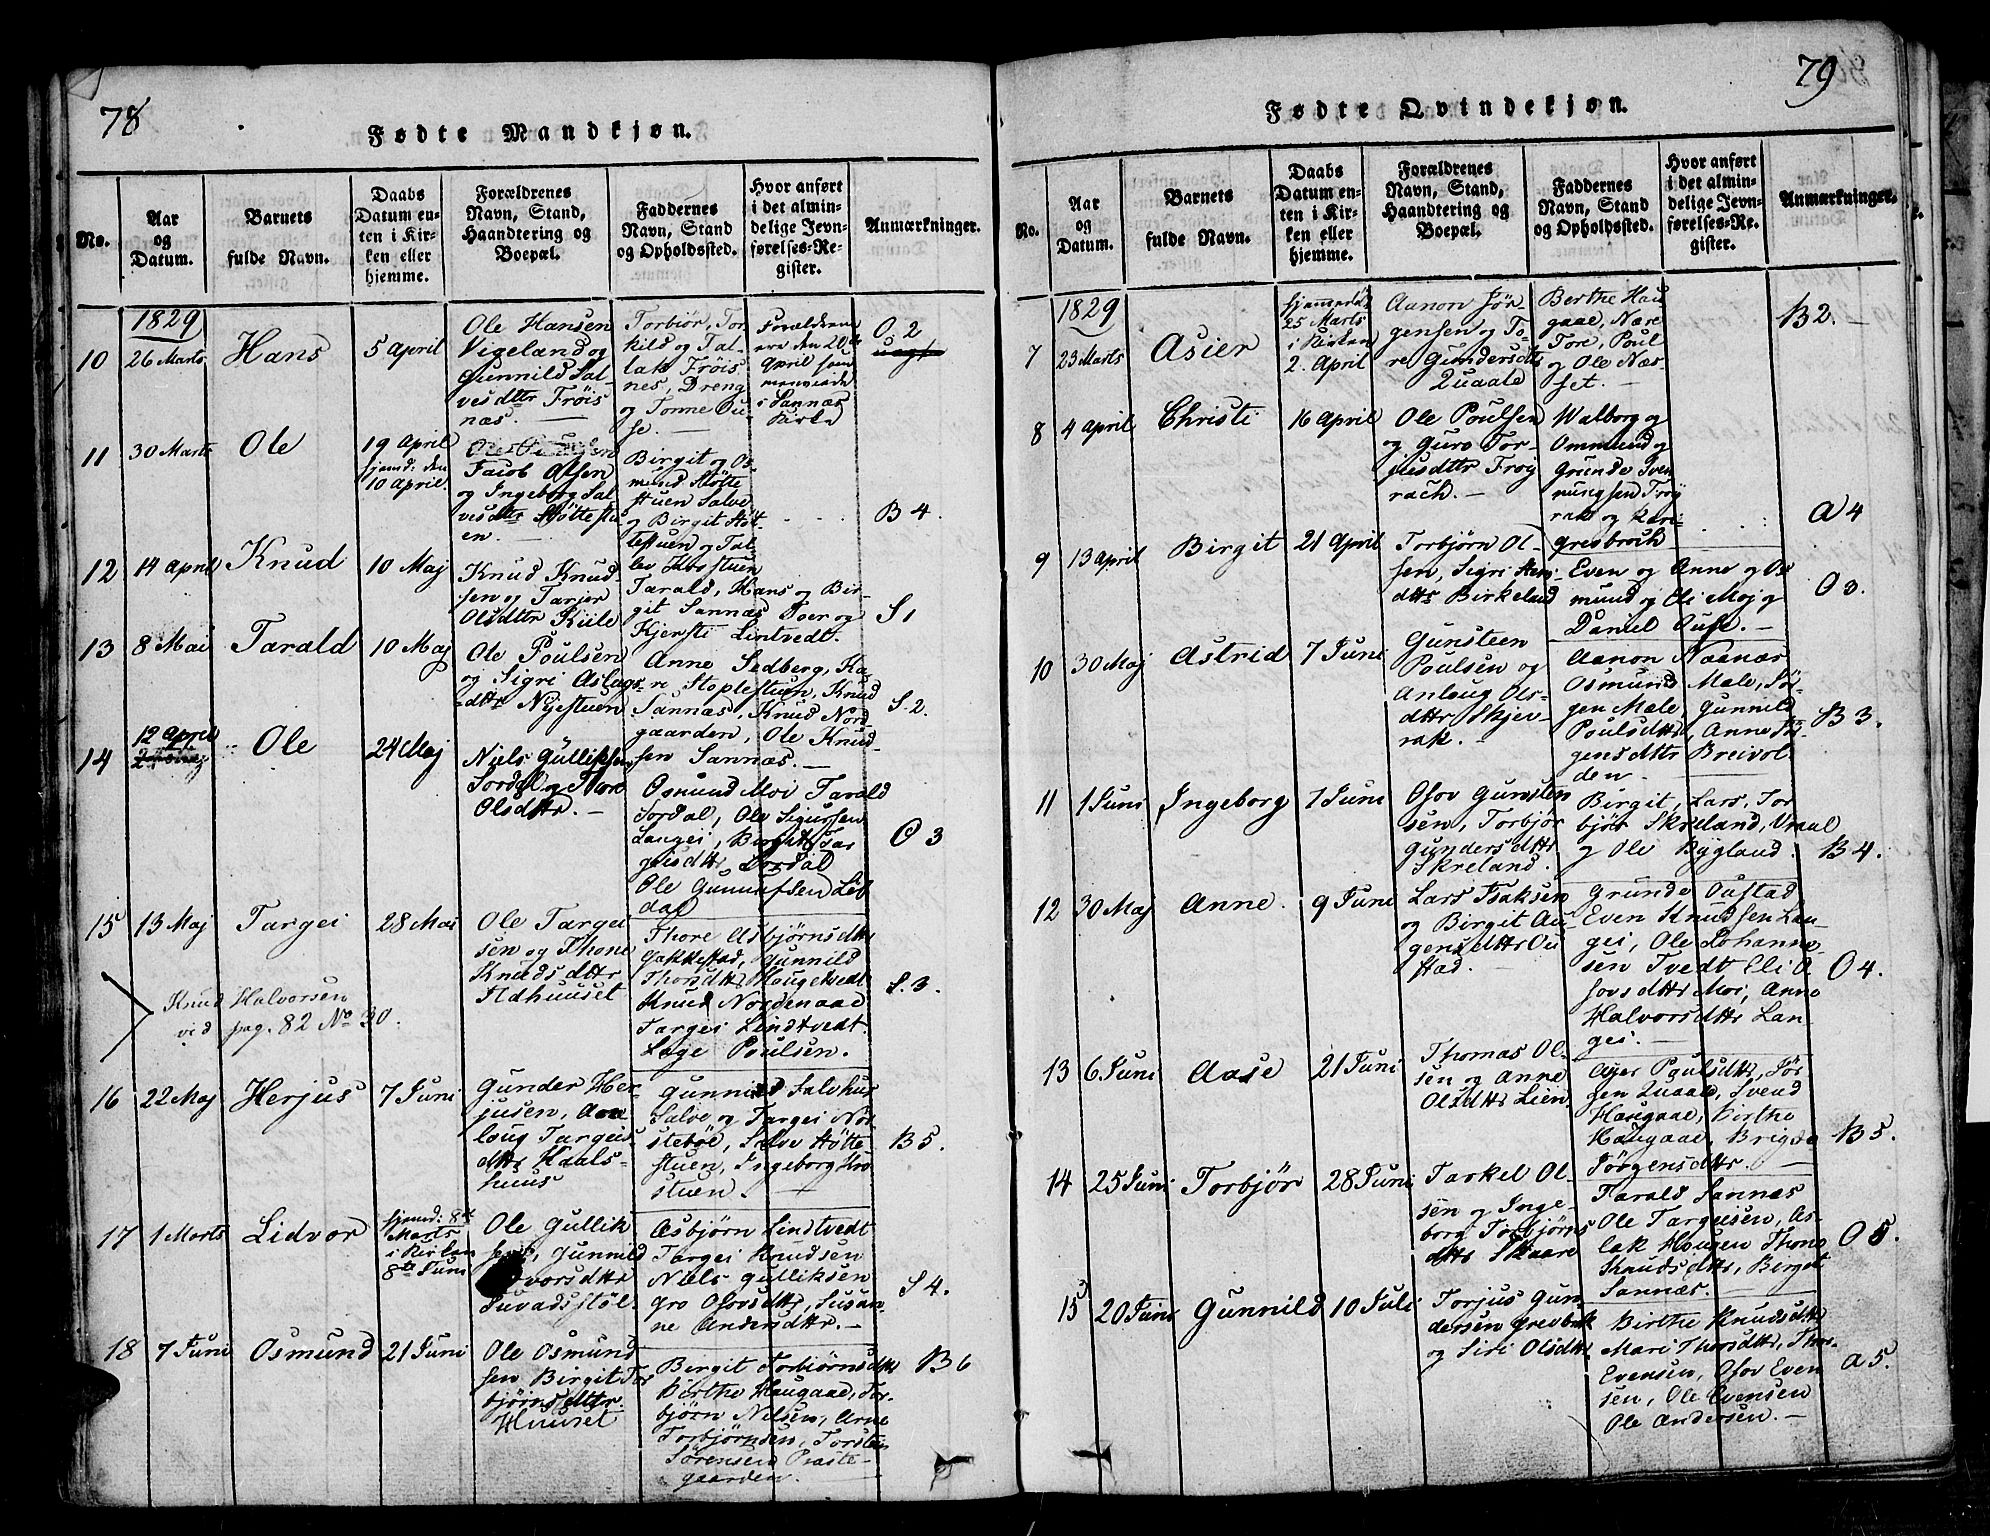 78
Fødte Mandkjøn.
No.
Aar
og
Datum.
Barnets
fulde Navn.
Daabs
Datum en-
ten i Kir-
ken eller
hjemme.
Forældrenes
Navn, Stand,
Haandtering og
Boepæl.
Faddernes
Navn, Stand
og Opholdssted.
Hvor anført
i det almin-
delige Jevn-
førelses-Re-
gister.
Anmærkninger.
1829
10
26 Marts
Hans
5 April
Ole Hansen
Vigeland og
Gunnild Sal-
vesdttr Frøis
næs.
Torbiør, Tor
kild og Tal-
lak Frøis
nes, Dreng
og Tonne Ou-
se.
Forældrene
ere den 20de
April
i Sannæs
Kirke
O 2
11
30 Marts
Ole
19 April
hjemd: den
10 April.
Jacob Olsen
og Ingeborg Sal
vesdttr Støttestu
en.
Birgit og Os-
mund Støtte
stuen Salve
og Birgit Støt-
testuen og Tal-
lev Krostuen
B 4
12
14 April
Knud
10 Maj
Knud Knud-
sen og Tarjer
Olsdttr Kiile
Tarald, Hans og Bir-
git Sannæs Toer og
Kjersti Lintvedt.
S 1
13
8 Mai
Tarald
10 Maj
Ole Poulsen
og Sigri Aslags-
dttr Nyestuen
Anne Sedberg, Ka-
ri Stoplestuen, Knud
Sannæs, Knud Nord-
gaarden, Ole Knud-
sen Sannæs.
S. 2.
14
12 April
Ole
24 Maj
Niels Gulliksen
Sordal og Thore
Olsdttr.
Osmund Moi Tarald
Sordal, Ole Sigursen
Langei, Birgit Tar
geisdttr Sordal
Ole Gunnufsen Lib
dal
O 3
15
13 Maj
Targei
28 Mai
Ole Targei
sen og Thone
Knudsdttr
Ildhuuset
Thore Asbjørnsdttr
Gakkestad, Gunnild
Thorsdttr Haugetvedt
Knud Nordenaae
Targei Lindtvedt.
Lage Poulsen.
S. 3.
Knud Halvorsen
vid pag. 82 No 30.
16
22 Maj
Herjus
7 Juni
Gunder Her-
jusen, Aan
loug Targeis
dttr Haals-
huus
Gunnild Salvhus
Salve og Targei Nor-
stebøe, Salve Støtte
stuen, Ingeborg Kro
stuen.
B 5.
17
1 Marts
Lidvor
hjemd: 8de
Marts
i Kirken
8de Juni
Ole Gullik
sen, Gunnild
vorsdttr
Suvadsstøl
Asbjørn Lindtvedt
Targei Knudsen
Niels Gulliksen
Gro Osovsdttr, Susan-
ne Andersdttr.
S 4.
18
7 Juni
Osmund
21 Juni
Ole Osmund
sen Birgit Tor
bjørnsdttr.
Huuset
Birgit Torbiørnsdttr
Birthe Haugaae, Tor-
bjørn Nilsen, Arne
Torbjørnsen, Torsten
Sørensen Præste-
gaarden.
B 6
79
Fødte Qvindekjøn.
No.
Aar
og
Datum.
Barnets
fulde Navn.
Daabs
Datum en-
ten i Kir-
ken eller
hjemme.
Forældrenes
Navn, Stand,
Haandtering og
Boepæl.
Faddernes
Navn, Stand
og Opholdssted.
Hvor anført
i det almin-
delige Jevn-
førelses-Re-
gister.
Anmærkninger.
1829
7
23 Marts
Asier
25 Marts
i Kirken
2. April
Aanon Jør
gensen og To-
re Gundersdttr
Quaale
Berthe Hau
gaae, Nære
Tore, Poul
og Ole Næs-
set.
B 2.
8
4 April
Christi
16 April
Ole Poulsen
og Guro Tor-
jusdttr Frøy
rach.
Walborg og
Ommund og
Grunde Even
nungsen Frøy
rak og Kari
Gresbroch
A 4
9
13 April
Birgit
21 April
Torbjørn Ol-
sen, Sigri
dttr Birkeland
Even og Anne og Os
mund og Eli Moj og
Daniel Ouse.
O 3.
10
30 Maj
Astrid
7 Juni
Gunsteen
Poulsen og
Anloug Ols-
dttr Skjev-
rak.
Aanon Næsnæs
Osmund Mæle, Jør-
gen Mæle, Gunnild
Poulsdttr, Anne Jør
gensdttr Breivol
den.
B 3.
11
1 Juni
Ingeborg
7 Juni
Osov Gunsten
sen, Torbjør
Gundersdttr
Skreland.
Birgit, Lars, Tor
bjør Skreland, Vraal
og Ole Bygland.
B 4.
12
30 Maj
Anne.
9 Juni
Lars Isaksen
og Birgit Au-
gensdttr Ou
stad.
Grunde Oustad
Even Knudsen Lan-
gei, Ole Johanne-
sen Tvedt Eli O
sovsdttr Moi, Anne
Halvorsdttr Lan-
gei.
O 4.
13
6 Juni
Aase
21 Juni
Thomas Ol-
sen og Anne
Olsdttr Lien
Asjer Poulsdttr, Jør
gen Quaale, Svend
Haugaae, Birthe
Haugaae, Brigte
Jørgensdttr.
B 5.
14
25 Juni
Torbjør
28 Juni
Tarkel Ol-
sen og Inge-
borg Torbjørns
dttr Skaare
Tarald Sannæs
Ole Targeisen, As-
lak Haugen Thone
Knudsdttr, Birget
Sannæs.
O 5.
15
20 Juni
Gunnild
10 Juli
Torjus Gun-
dersen Gresbrok
og Siri Olsdttr
Birthe Knudsdttr
Mari Thorsdttr, Thor-
Evensen, Osov Even
sen, Ole Evensen
Ole Andersen.
A 5.